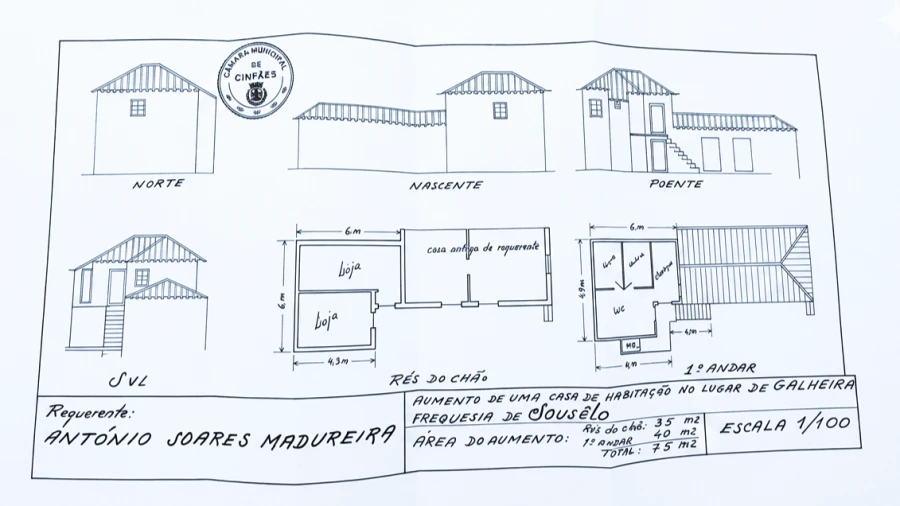 CÂMARA MUNICIPAL
DE
CINFÃES
NORTE
NASCENTE
POENTE
SUL
6,m
6,m
4,3m
Loja
Loja
casa antiga de requerente
RÉS DO CHÃO
6,m
4,9m
WC
4,m
4,m
1º ANDAR
Requerente:
ANTÓNIO SOARES MADUREIRA
AUMENTO DE UMA CASA DE HABITAÇÃO NO LUGAR DE GALHEIRA
FREQUESIA DE Sousêlo
ÁREA DO AUMENTO:
Rés do chã: 35 m2
1º ANDAR 40 m2
TOTAL: 75 m2
ESCALA 1/100